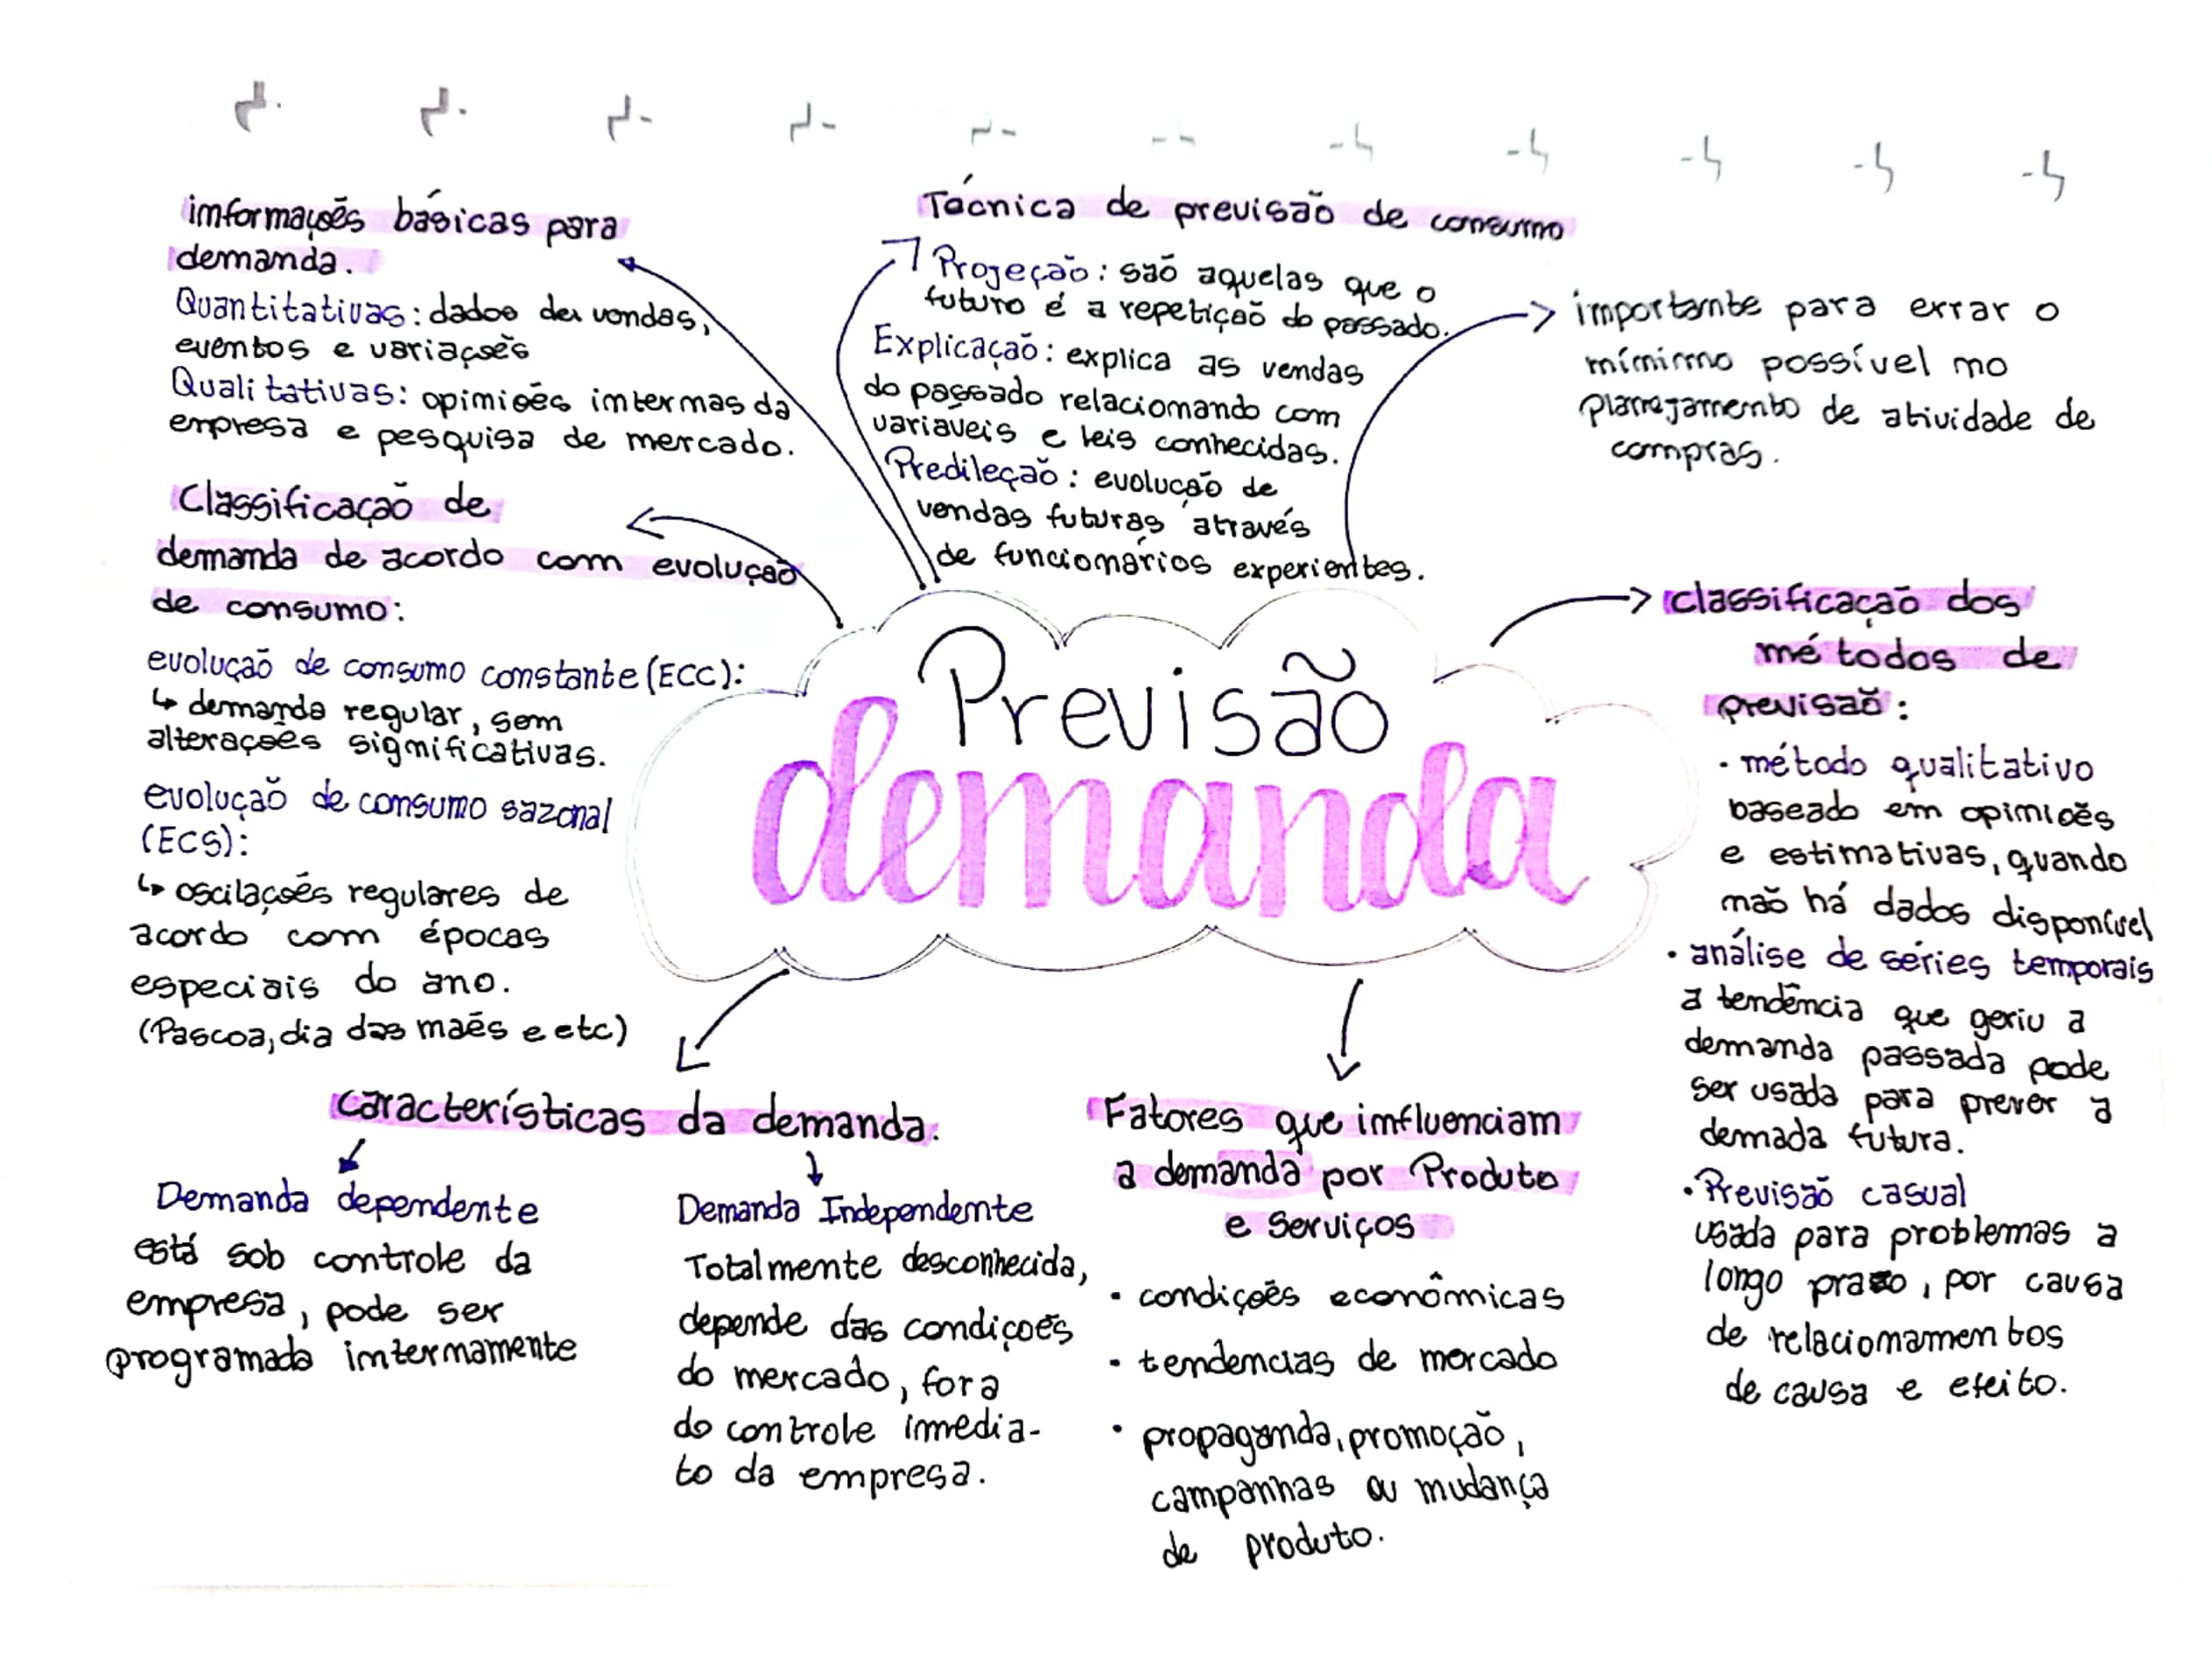 imformações básicas para
demanda.
Quantitativas: dados de vendas,
eventos e variações
Qualitativas: opimiões imtermas da
empresa e pesquisa de mercado.
Classificação de
demanda de acordo com evolução
de consumo:
evolução de consumo constante (ECC):
↳ demanda regular, sem
alterações significativas.
evolução de consumo sazonal
(ECS):
↳ oscilações regulares de
acordo com épocas
especiais do ano.
(Pascoa, dia das maẽs e etc)
Técnica de previsão de consumo
Projeção: são aquelas que o
futuro é a repetição do passado.
Explicação: explica as vendas
do passado relaciomando com
variaveis e leis conhecidas.
Predileção: evolução de
vendas futuras através
de funciomários experientes.
importante para errar o
mímimo possível mo
planejamento de atividade de
compras.
Previsão
demanda
classificação dos
métodos de
previsão:
• método qualitativo
baseado em opimiões
e estimativas, quando
mão há dados disponível
• análise de séries temporais
a tendência que geriu a
demanda passada pode
ser usada para prever a
demada futura.
• Previsão casual
usada para problemas a
longo prazo, por causa
de relaciomamentos
de causa e efeito.
características da demanda.
Demanda dependente
está sob controle da
empresa, pode ser
programada imtermamente
Demanda Independente
Totalmente desconhecida,
depende das condições
do mercado, fora
do controle imedia-
to da empresa.
Fatores que imfluenciam
a demanda por Produto
e Serviços
• condições econômicas
• tendencias de mercado
• propaganda, promoção,
campanhas ou mudança
de produto.